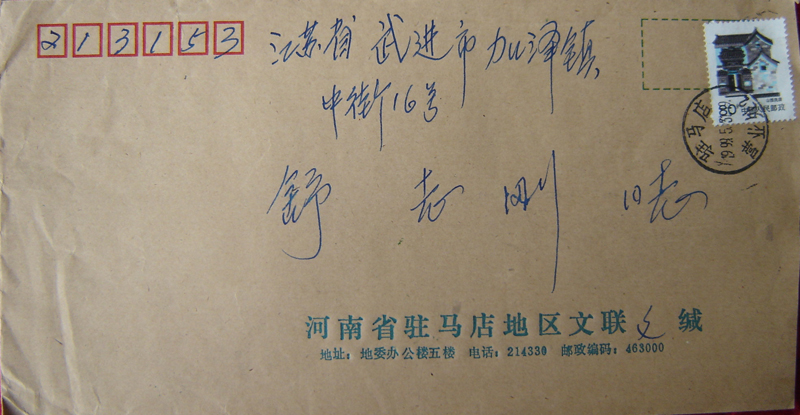 213153
江苏省 武进市 加泽镇
中街16号
舒 志 刚
驻马店
河南省驻马店地区文联 缄
地址：地委办公楼五楼 电话：214330 邮政编码：463000